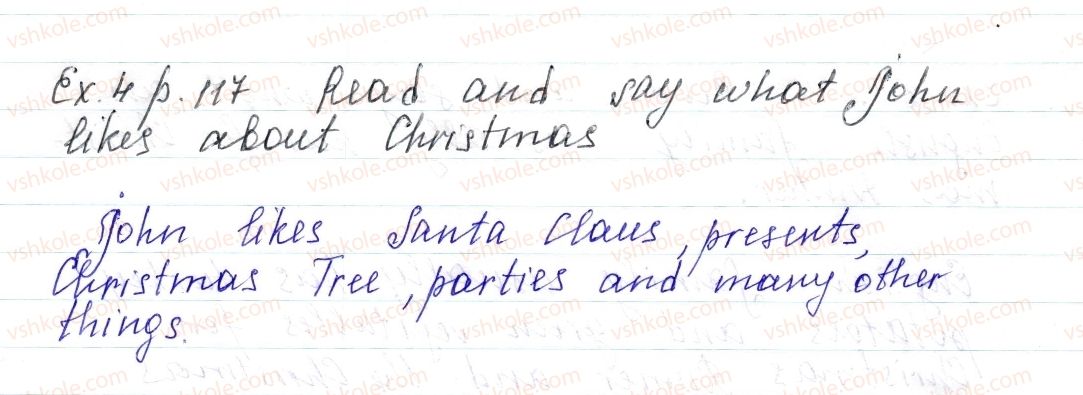 Ex. 4 p. 117 Read and say what John
likes about Christmas
John likes Santa Claus, presents,
Christmas Tree, parties and many other
things.